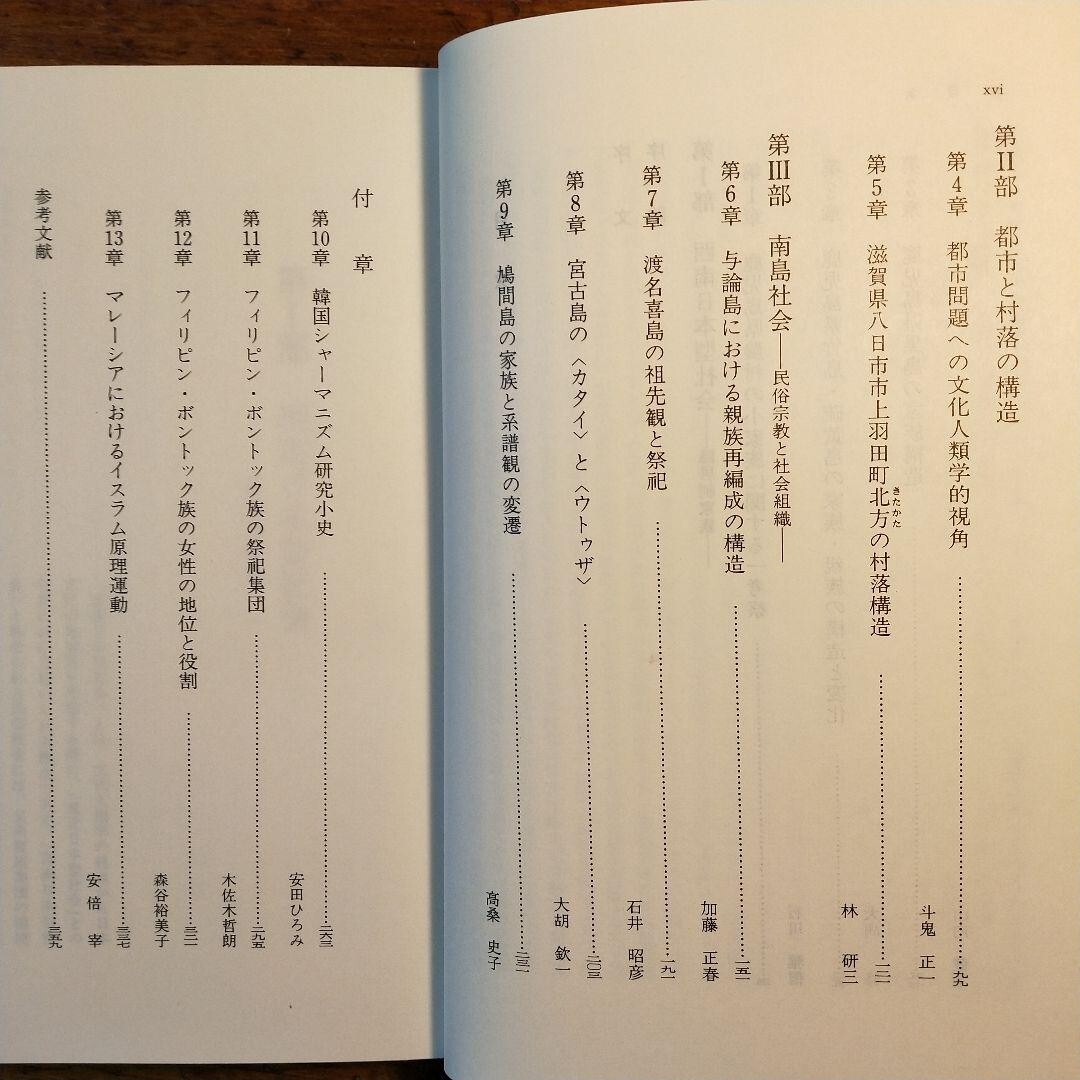 xvi
第II部 都市と村落の構造
第4章 都市問題への文化人類学的視角……九九
斗鬼 正一
第5章 滋賀県八日市市上羽田町北方の村落構造……一二一
きたかた
林 研三
第III部 南島社会――民俗宗教と社会組織――
第6章 与論島における親族再編成の構造……一五一
加藤 正春
第7章 渡名喜島の祖先観と祭祀……一九一
石井 昭彦
第8章 宮古島の〈カタイ〉と〈ウトゥザ〉……二〇三
大胡 欽一
第9章 鳩間島の家族と系譜観の変遷……二三一
髙桑 史子
付章
第10章 韓国シャーマニズム研究小史……二六三
安田ひろみ
第11章 フィリピン・ボントック族の祭祀集団……二九五
木佐木哲朗
第12章 フィリピン・ボントック族の女性の地位と役割……三二一
森谷裕美子
第13章 マレーシアにおけるイスラム原理運動……三三七
安倍 宰
参考文献……三五九